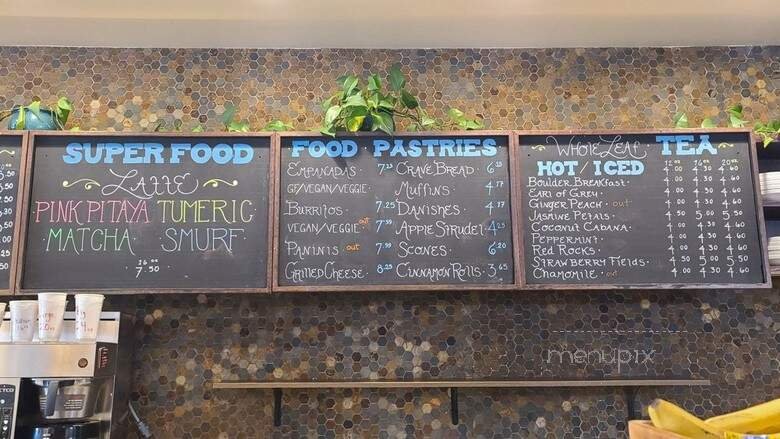 SUPER FOOD
LATTE
PINK PITAYA TUMERIC
MATCHA SMURF
16oz
7.50
FOOD PASTRIES
EMPANADAS 7.25 CRAVE BREAD
GF/VEGAN/VEGGIE MUFFINS 4.17
BURRITOS 7.25 DANISHES 4.17
VEGAN/VEGGIE out APPLE STRUDEL
PANINIS out SCONES 6.20
GRILLED CHEESE CINNAMON ROLLS
WHOLE LEAF TEA
HOT/ICED 12oz 16oz 20oz
BOULDER BREAKFAST 4.00 4.30 4.60
EARL OF GREY 4.00 4.30 4.60
GINGER PEACH out 4.00 4.30 4.60
JASMINE PETALS 4.50 5.00 5.50
COCONUT CABANA 4.00 4.30 4.60
PEPPERMINT 4.00 4.30 4.60
RED ROCKS 4.00 4.30 4.60
STRAWBERRY FIELDS 4.50 5.00 5.50
CHAMOMILE out 4.00 4.30 4.60
menupix